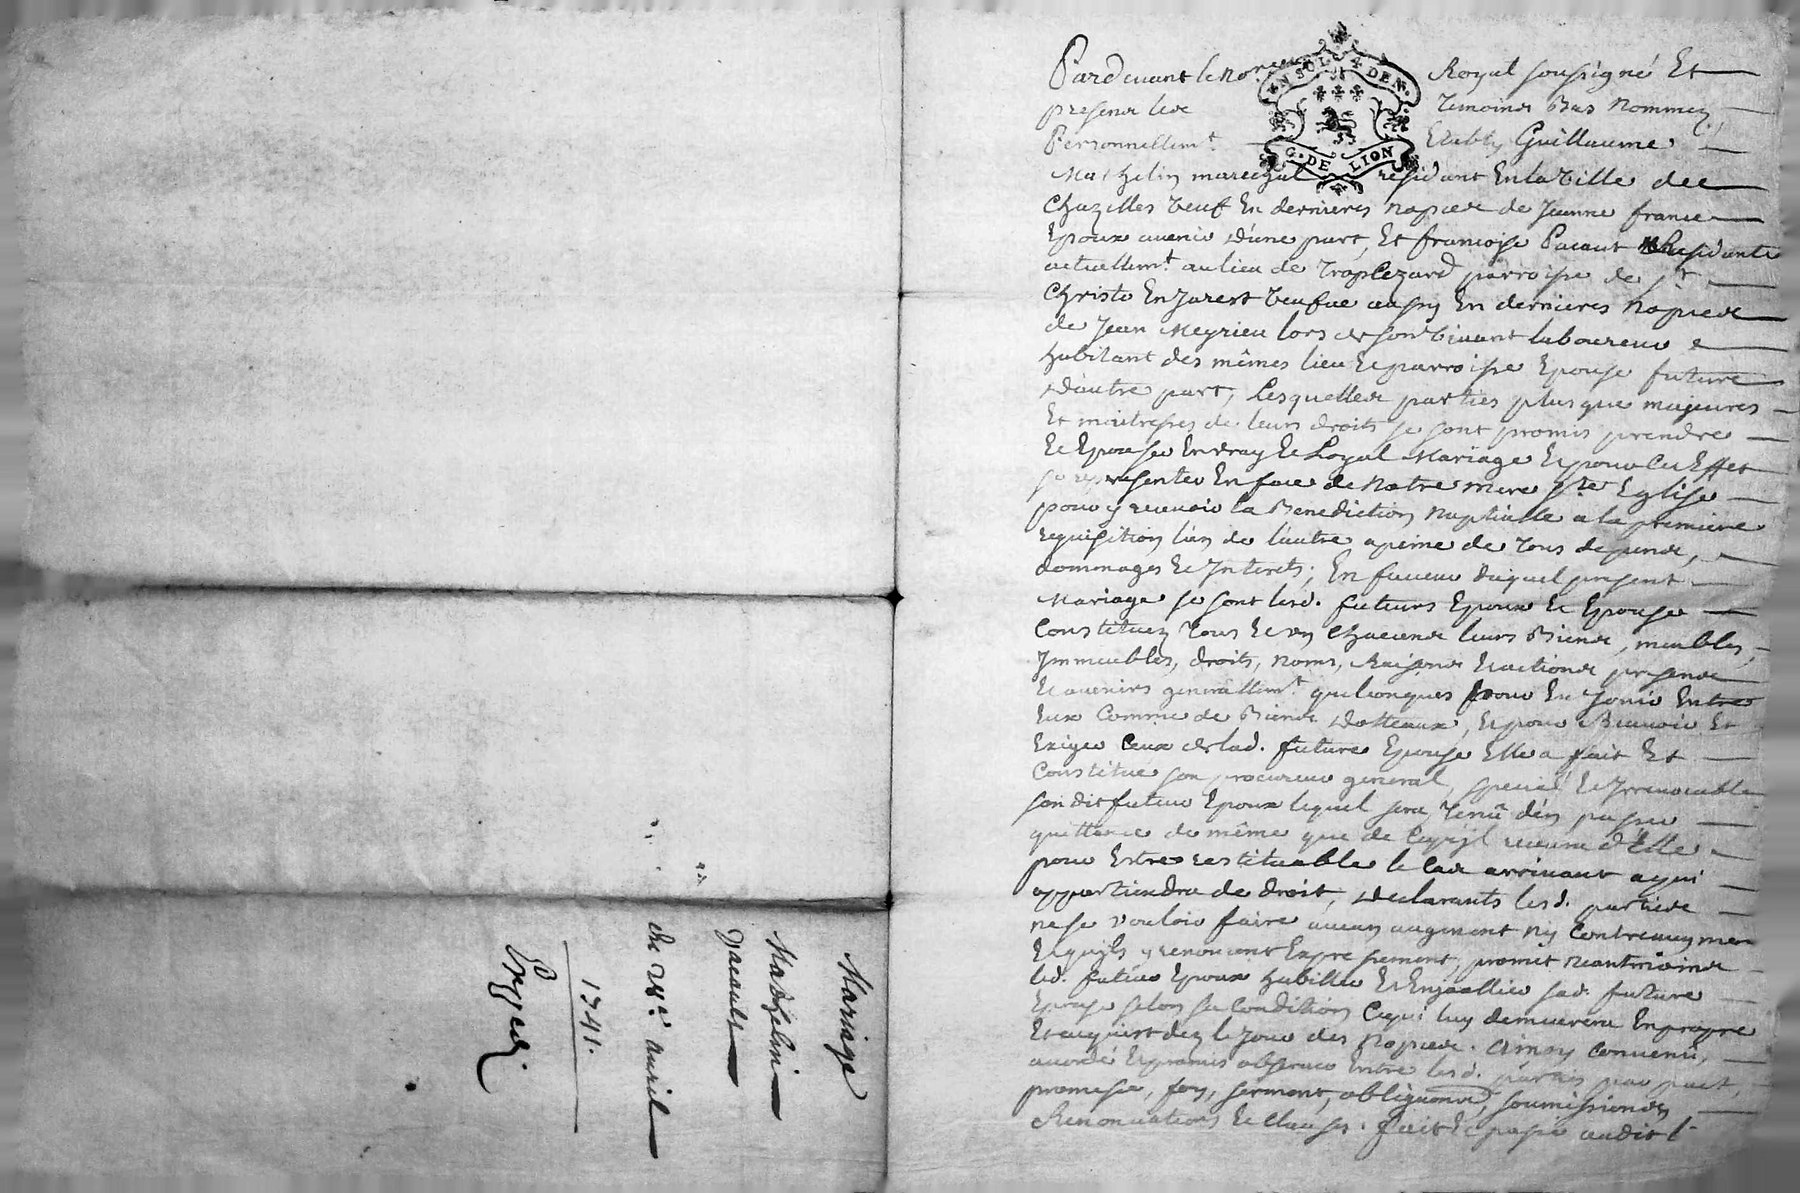 Pardevant le No.re Royal soussigné Et
presence de Temoins Bas Nommez
Personnellem.t Etably Guillaume
Mathelin marechal residant En la Ville de
Chazelles veuf En dernieres Nopces de Jeanne france
Epoux avenir d'une part, Et francoise Pacaut Residante
actuellem.t au lieu de parroisse de s.t
Christo En Jarest veufve aussy En dernieres Nopces
de Jean Meyrieu lors de son vivant laboureur &
habitant des mêmes lieu Et parroisse Epouse future
d'autre part, lesquelles parties plus que majeures
Et maitresses de leurs droits se sont promis prendre
Et Epouser En vray Et Loyal Mariage Et pour Cet Effet
se representer En face de Notre mere s.te Eglise
pour y recevoir la Benediction Nuptialle a la premiere
requisition l'un de l'autre a peine de Tous depens,
dommages Et Interets; En faveur duquel present
Mariage se sont lesd. futurs Epoux Et Epouse
Constituez Tous Et un Chacuns leurs Biens, meubles,
Immeubles, droits, noms, Raisons Et actions presens
Et avenirs generallem.t quelconques pour En Jouir Entre
Eux Comme de Biens dotteaux, Et pour Recevoir Et
Exiger Ceux de lad. future Epouse Elle a fait Et
Constitué son procureur general, special Et Irrevocable
son dit futur Epoux lequel sera Tenu d'en passer
quittance de même que de Ce qu'il recevra d'Elle
pour Estre restituable le Cas arrivant a qui
appartiendra de droit, declarants lesd. parties
ne se vouloir faire aucun augment ny Contreaugment
Et qu'ils y renoncent Expressement, promet Neantmoins
led. futur Epoux habiller Et Enjoallier sad. future
Epouse selon sa Condition Ce qui luy demeurera En propre
Et acquist dez le Jour des Nopces. Ainsy Convenu,
accordé Et promis observer Entre lesd. parties par pact,
promesse, foy, serment, obligaons, soumissions,
Renonciations Et Clauses. fait Et passé audit l
N SOL 4 DEN.
G. DE LION
Mariage
Mathelin
Pacault
du 28.e avril
1741.